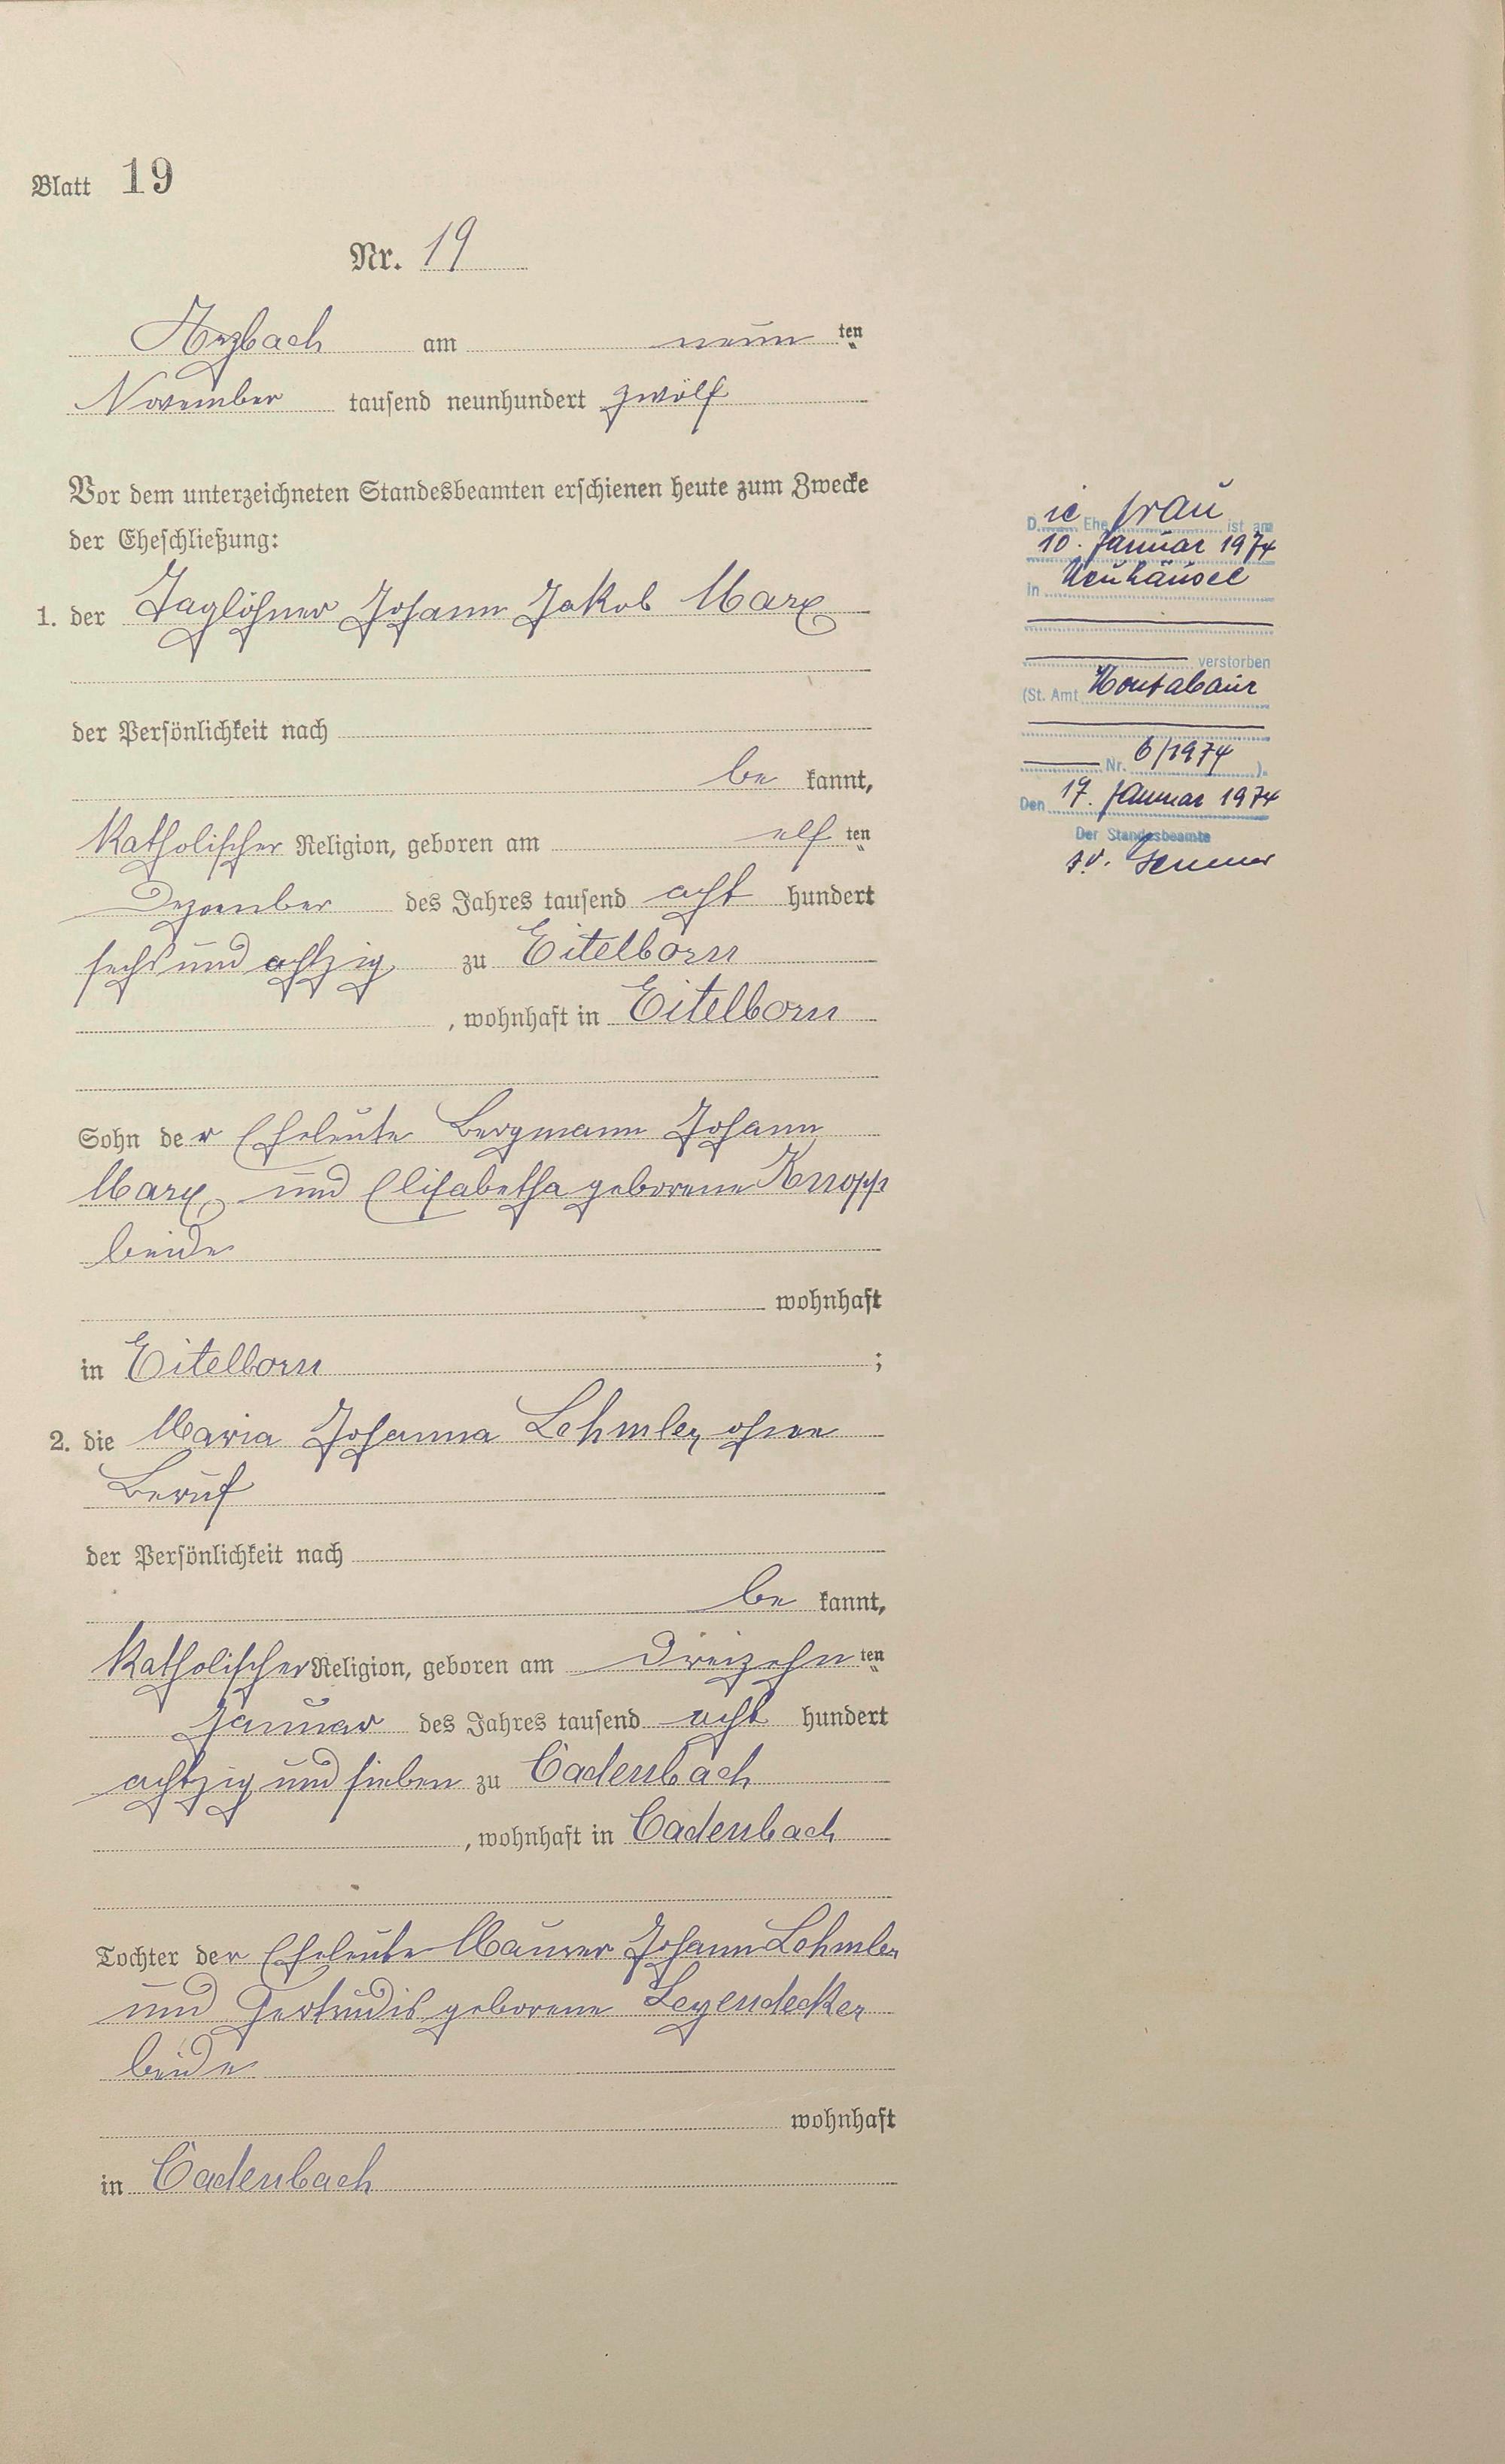 Blatt 19
Nr. 19
Arzbach am neun ten
November tausend neunhundert zwölf
Vor dem unterzeichneten Standesbeamten erschienen heute zum Zwecke
der Eheschließung:
1. der Taglöhner Johann Jakob Marx
der Persönlichkeit nach
be kannt,
katholischer Religion, geboren am elf ten
Dezember des Jahres tausend acht hundert
sechs und achtzig zu Eitelborn
, wohnhaft in Eitelborn
Sohn der Eheleute Bergmann Johann
Marx und Elisabetha geborene Knopp
beide
wohnhaft
in Eitelborn ;
2. die Maria Johanna Lehmler, ohne
Beruf
der Persönlichkeit nach
be kannt,
katholischer Religion, geboren am dreizehn ten
Januar des Jahres tausend acht hundert
achtzig und sieben zu Cadenbach
, wohnhaft in Cadenbach
Tochter der Eheleute Maurer Johann Lehmler
und Gertrudis geborene Leyendecker
beide
wohnhaft
in Cadenbach
Die Ehefrau ist am
10. Januar 1974
in Neuhäusel
verstorben
(St. Amt Montabaur
Nr. 6/1974 ).
Den 17. Januar 1974
Der Standesbeamte